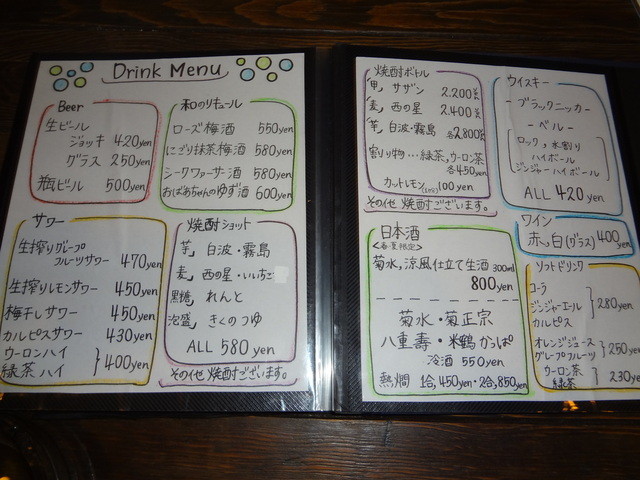 Drink Menu
Beer
生ビール
ジョッキ 420yen
グラス 250yen
瓶ビール 500yen
和のリキュール
ローズ梅酒 550yen
にごり抹茶梅酒 580yen
シークワァーサー酒 580yen
おばあちゃんのゆず酒 600yen
サワー
生搾りグレープ
フルーツサワー 470yen
生搾りレモンサワー 450yen
梅干しサワー 450yen
カルピスサワー 430yen
ウーロンハイ
緑茶ハイ 400yen
焼酎ショット
芋」 白波・霧島
麦」 西の星・いいちこ
黒糖」 れんと
泡盛」 きくのつゆ
ALL 580 yen
その他 焼酎ございます。
焼酎ボトル
甲」 サザン 2.200
麦」 西の星 2.400
芋」 白波・霧島 各2.800
割り物…緑茶,ウーロン茶
各450yen
カットレモン 100yen
その他 焼酎ございます。
日本酒
菊水,涼風仕立て生酒 300ml
800yen
菊水・菊正宗
八重寿・米鶴かっぱ
冷酒 550yen
熱燗 1合,450yen・2合,850yen
ウイスキー
ーブラックニッカー
ーベルー
ロック,水割り
ハイボール
ジンジャーハイボール
ALL 420yen
ワイン
赤,白(グラス) 400yen
ソフトドリンク
コーラ
ジンジャーエール 280yen
カルピス
オレンジジュース
グレープフルーツ 250yen
ウーロン茶
緑茶 230ye